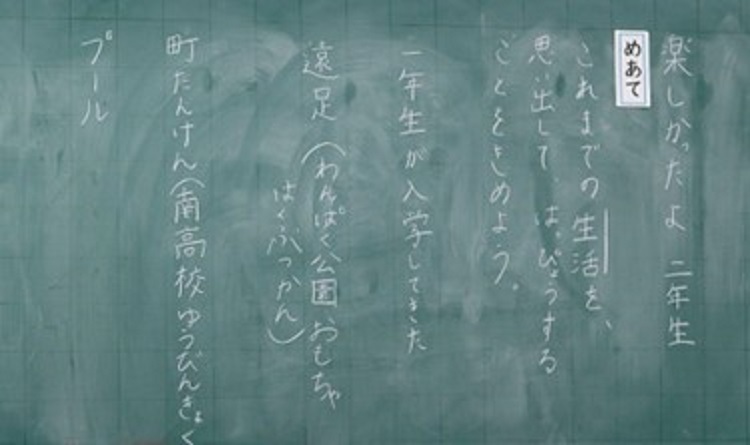 楽しかったよ 二年生
めあて
これまでの生活を、
思い出して はっぴょうする
ことをきめよう。
一年生が入学してきた
遠足(わんぱく公園、おもちゃ
はくぶつかん)
町たんけん(南高校ゆうびんきょく
プール